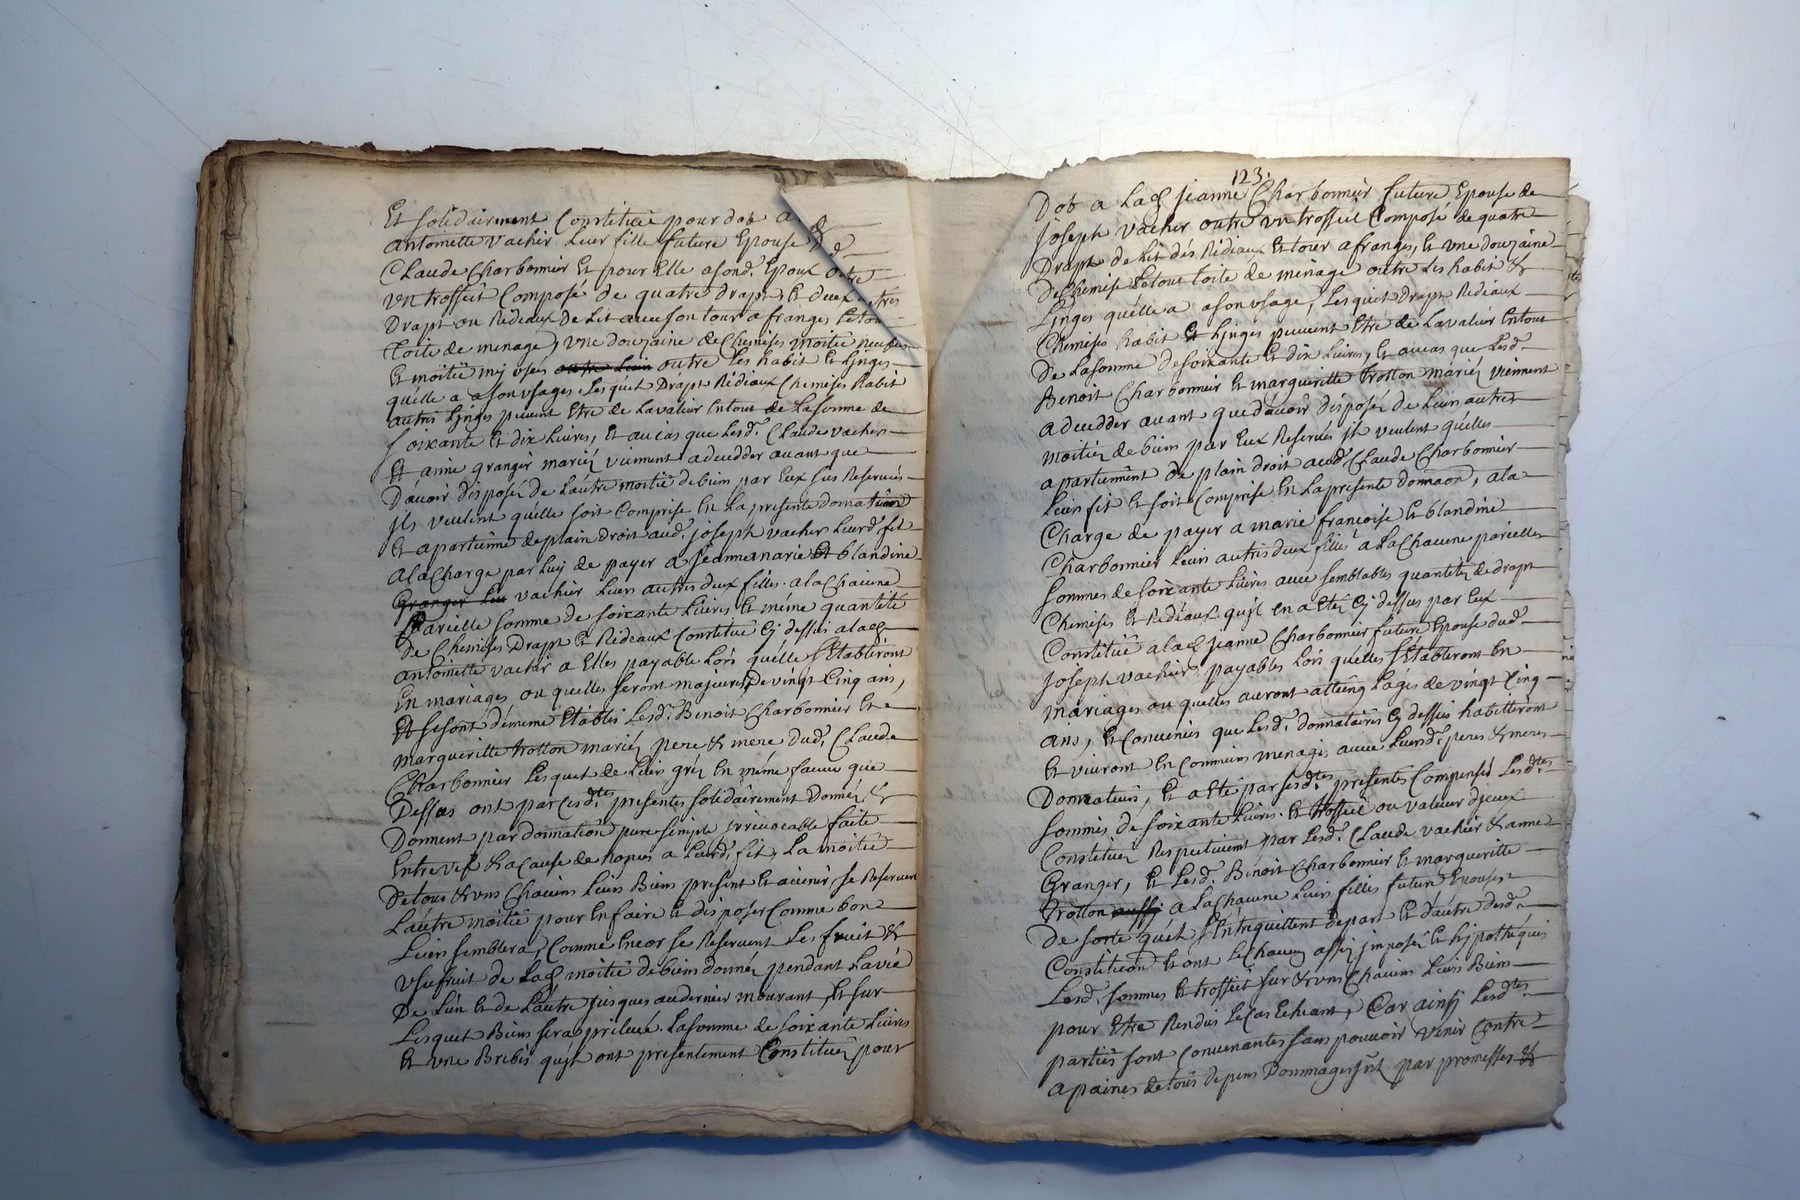 Et solidairement Constituée pour dob a
antoinette vacher Leur fille future Epouse
Claude Charbonnier Et pour Elle asond. Epoux outre
vn trosseit Composé de quatre drapt, Et deux autres
Drapt ou Rideaux de Lit avec son tour a franges Letout
toile de menage, vne douzaine de Chemises moitié neufves
Et moitié my vsés outre Leurs outre Les habit Et Linges
quélle a asonvsages, Lesquet Drapt Rediaux Chemises habit
autres Linges peuvent Etre de Lavaleur Entout de La somme de
soixante Et dix Livres, Et aucas que Lesd. Claude vacher
Et anne granger mariéz viennent adecedder avant que
D'avoir disposéz de L'autre moitié debien par Eux sus Reservés
jls veulent quélle soit Comprise En La presente donnation
Et apartienne deplain droit aud. joseph vacher Leurd. fit
ala Charge par Luy de payer a Jeanne marie Et blandine
Granger Leu vacher Leurs autres deux filles. ala chacune
Pareille somme de soixante Livres Et méme quantité
de Chemises Drapt Et Rideaux Constitué Cj dessus alad
antoinette vacher a Elles payable Lors quélle s'Etabliront
En mariages ou quelles seront majeures De vingt Cinq ans,
Et se sont déméme Etablis Lesd. Benoit Charbonnier Et
marguerille trotton mariéz pere & mere dud. Claude
Charbonnier Lesquet de Leurs gréz En méme faveur que
Dessas ont par Cesdtes presentes solidairement Donnéz &
Donnent par donnation pure simple jrrevocable faite
Entre vif & a Cause de nopces a Leurd. fit, La moitié
De tous & vns Chacuns Leurs Biens present Et avenir, se Reservent
L'autre moitié pour Enfaire Et disposer Comme bon
Leurs semblera, Comme Encor se Reservent Les fruit &
vsufruit de Lad moitié debien donnéz pendant Lavie
De L'un Et de L'autre jusques au dernier mourant, Et sur
Lesquet Biens sera prélevé. La somme de soixante Livres
Et vne Brebis qu'jls ont presentement Constituéz pour
123.
Dob a Lad Jeanne Charbonnier future Epouse de
joseph vacher outre vn trosseit Composé de quatre
Drapt de Lit dés Rédiaux Et tour afranges, Et vne douzaine
de Chemise Letout toile de ménage outre Les habit &
Linges quélle a asonvsage, Lesquet Drapt Rediaux
Chemises habit Et Linges peuvent Etre de Lavaleur Entout
de La somme de soixante Et dix Livres, Et aucas que Lesd.
Benoit Charbonnier Et marguerille trotton mariéz viennent
adecedder avant que d'avoir disposéz de Leurs autres
moitiés de biens par Eux Reservés jls veulent quélles
apartiennent de plain droit aud. Claude Charbonnier
Leurs fit Et soit Comprise En Lapresente donnaon, ala
Charge de payer a marie françoise Et blandine
Charbonnier Leurs autres deux filles a La Chacune pareilles
sommes de soixante Livres avec semblables quantitéz de drapt
Chemises Et Rédeaux qu'jl En a Etéz Cj dessus par Eux
Constitué alad Jeanne Charbonnier future Epouse dud
joseph vacher, payables Lors quélles s'Etabliront En
mariages ou quelles auront atteing Lages de vingt Cinq
ans, Et Convenus que Lesd. donnataires Cj dessus habitteront
Et vivront En Communs menages avec Leursd. peres & meres
Donnateurs, Et a Eté par Cesdtes presentes Compensés Lesdtes
sommes de soixante Livres. Et trosseit ou valeur djceux
Constituéz Respectivemt par Lesd. Claude vacher & anne
Granger, Et Lesd. Benoit Charbonnier Et marguerille
trotton aussy a La chacune Leurs filles future Epouses
De sorte qu'jls s'Entrequittent depart Et d'autre desd.
Constitution Et ont Le Chacun assis jmposéz Et hypothéqués
Lesd. sommes Et trosseit sur & vns Chacuns Leurs Biens
pour Etre Rendus Le Cas Echeant, Car ainsy Lesdtes
parties sont Convenantes sans pouvoir venir Contre
apaines de tous depens Dommages jnt par promesses &